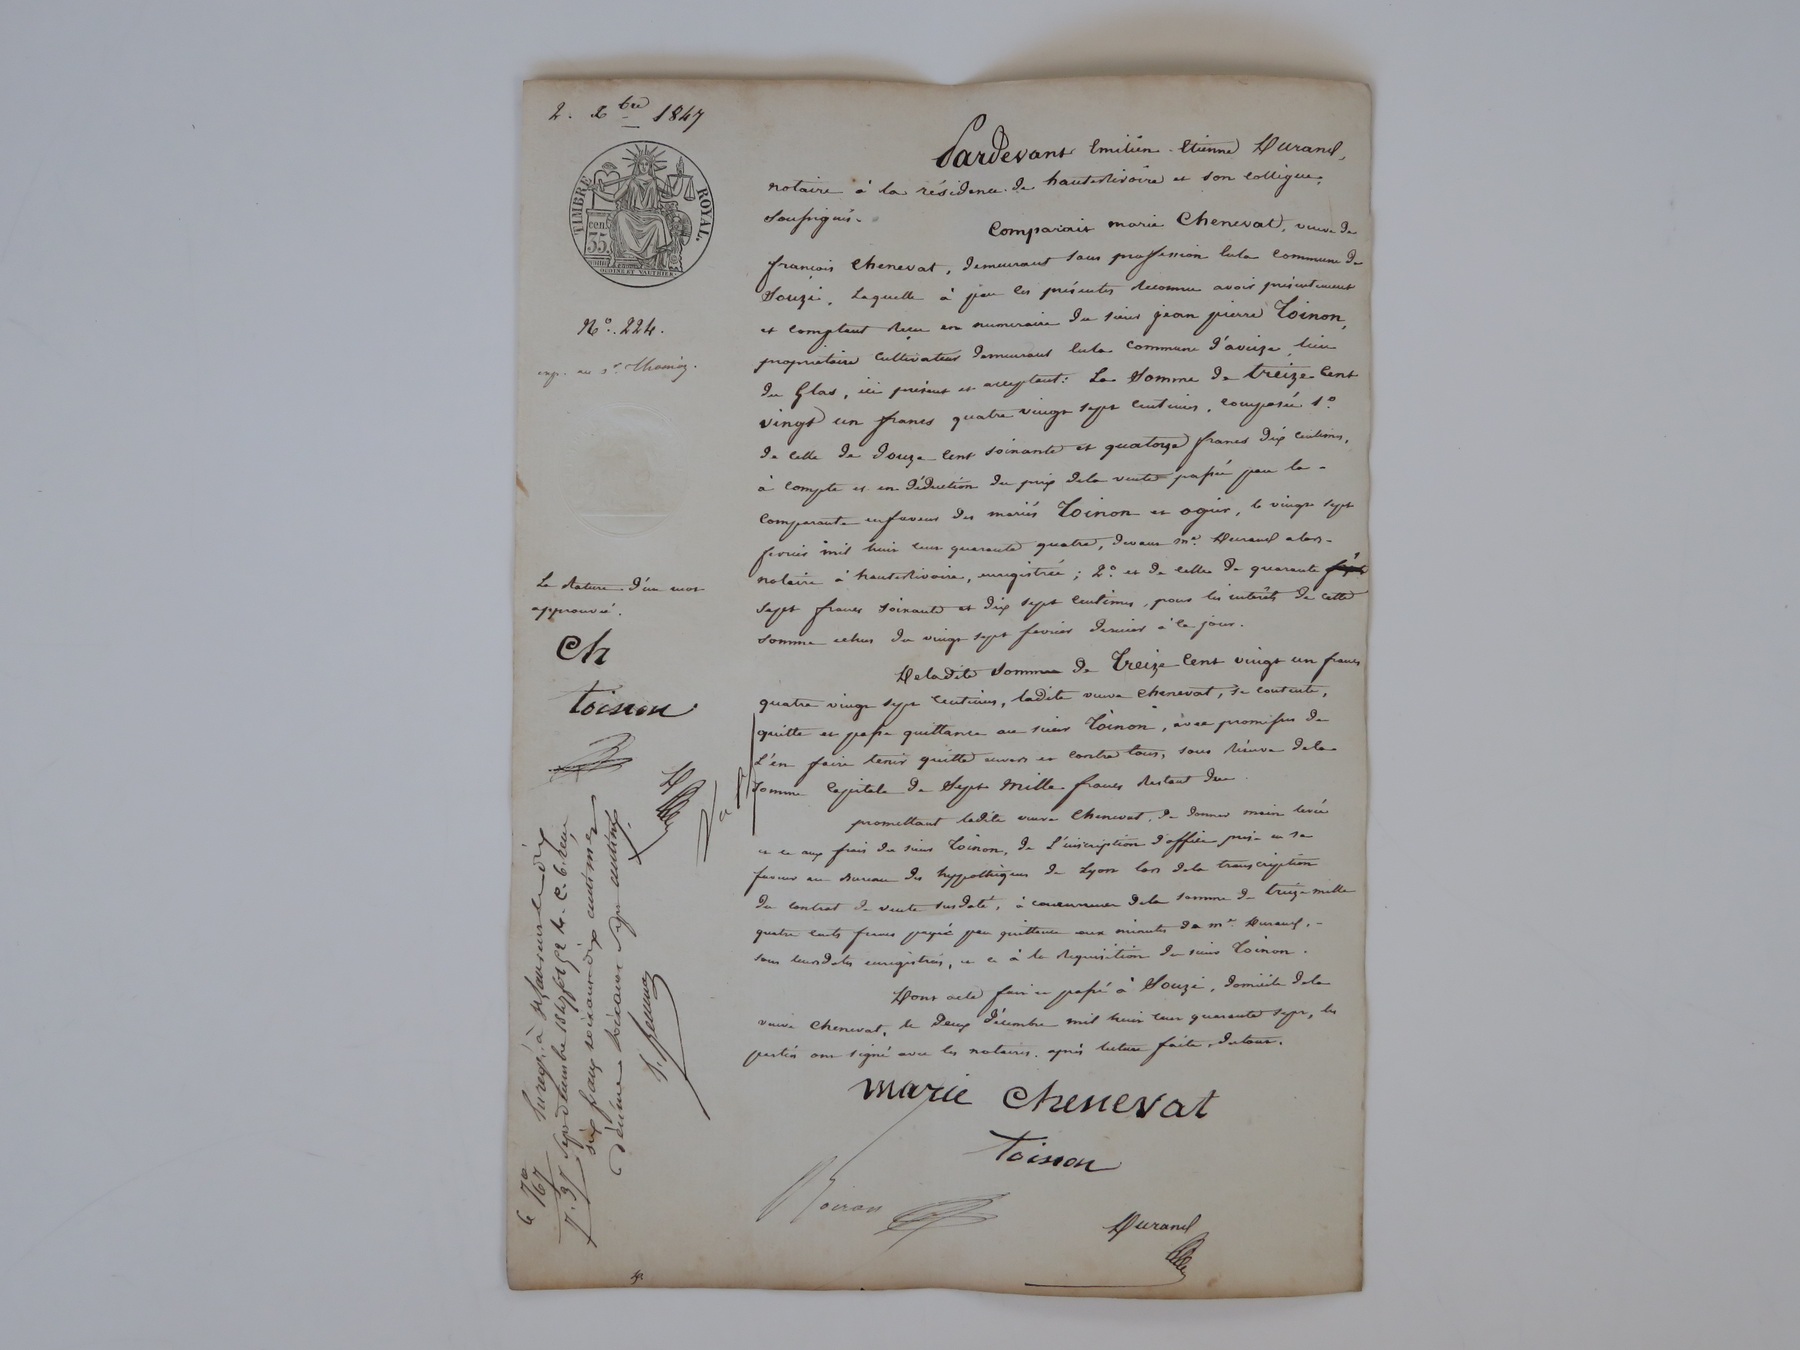 2. Xbre 1847
TIMBRE ROYAL.
cen. 35.
N°. 224.
exp. au sr.
La rature d'un mot
approuvée.
Ch
toinon
Pardevant Emilien Etienne Durand,
notaire à la résidence de hauterivoire et son collègue,
soussignés.
Comparait marie Chenevat, veuve de
françois Chenevat, demeurant sans profession en la commune de
Souzi. Laquelle a par les présentes reconnu avoir présentement
et comptant reçu en numéraire du sieur jean pierre Toinon,
propriétaire cultivateur demeurant en la commune d'aveize, lieu
du Glas, ici présent et acceptant: La Somme de treize Cent
vingt un francs quatre vingt sept centimes, composée 1°.
de celle de douze cent soixante et quatorze francs dix centimes,
à compte et en déduction du prix de la vente passée par la
comparante en faveur des mariés Toinon et ogier, le vingt sept
fevrier mil huit cent quarante quatre, devant me. Durand alors
notaire à hauterivoire, enregistrée; 2°. et de celle de quarante
sept francs soixante et dix sept centimes, pour les intérêts de cette
somme echus du vingt sept fevrier dernier à ce jour.
De ladite Somme de Treize Cent vingt un francs
quatre vingt sept centimes, ladite veuve Chenevat, se contente,
quitte et passe quittance au sieur Toinon, avec promesse de
l'en faire tenir quitte envers et contre tous, sous réserve de la
somme Capitale de Sept Mille francs restant due.
promettant ladite veuve Chenevat, de donner main levée
et ce aux frais du sieur Toinon, de l'inscription d'office prise en sa
faveur au Bureau des hypothèques de Lyon lors de la transcription
du contrat de vente susdaté, à concurrence de la somme de treize mille
quatre cents francs payée par quittance aux minutes de me. Durand,
sous leurs dates enregistrées, et ce à la requisition du sieur Toinon.
Dont acte fait et passé à Souzi, domicile de la
veuve Chenevat, le deux décembre mil huit cent quarante sept, les
parties ont signé avec les notaires. après lecture faite, du tout.
marie chenevat
toinon
Durand
Enregé. à St Laurent le dix
sept décembre 1847 fo 192 Ro. C. 6. Reçu
six francs soixante dix centimes
décime soixante sept centimes.